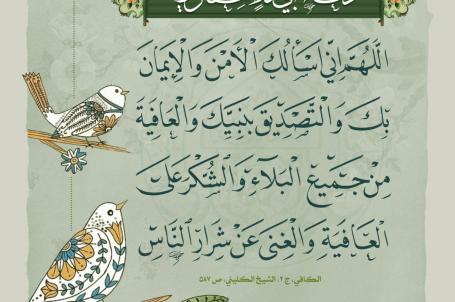 اللَّهُمَّ إِنِّي أَسْأَلُكَ الْأَمْنَ وَالْإِيمَانَ
بِكَ وَالتَّصْدِيقَ بِنَبِيِّكَ وَالْعَافِيَةَ
مِنْ جَمِيعِ الْبَلَاءِ وَالشُّكْرَ عَلَى
الْعَافِيَةِ وَالْغِنَى عَنْ شِرَارِ النَّاسِ
الكافي، ج ٢، الشيخ الكليني، ص ٥٨٧